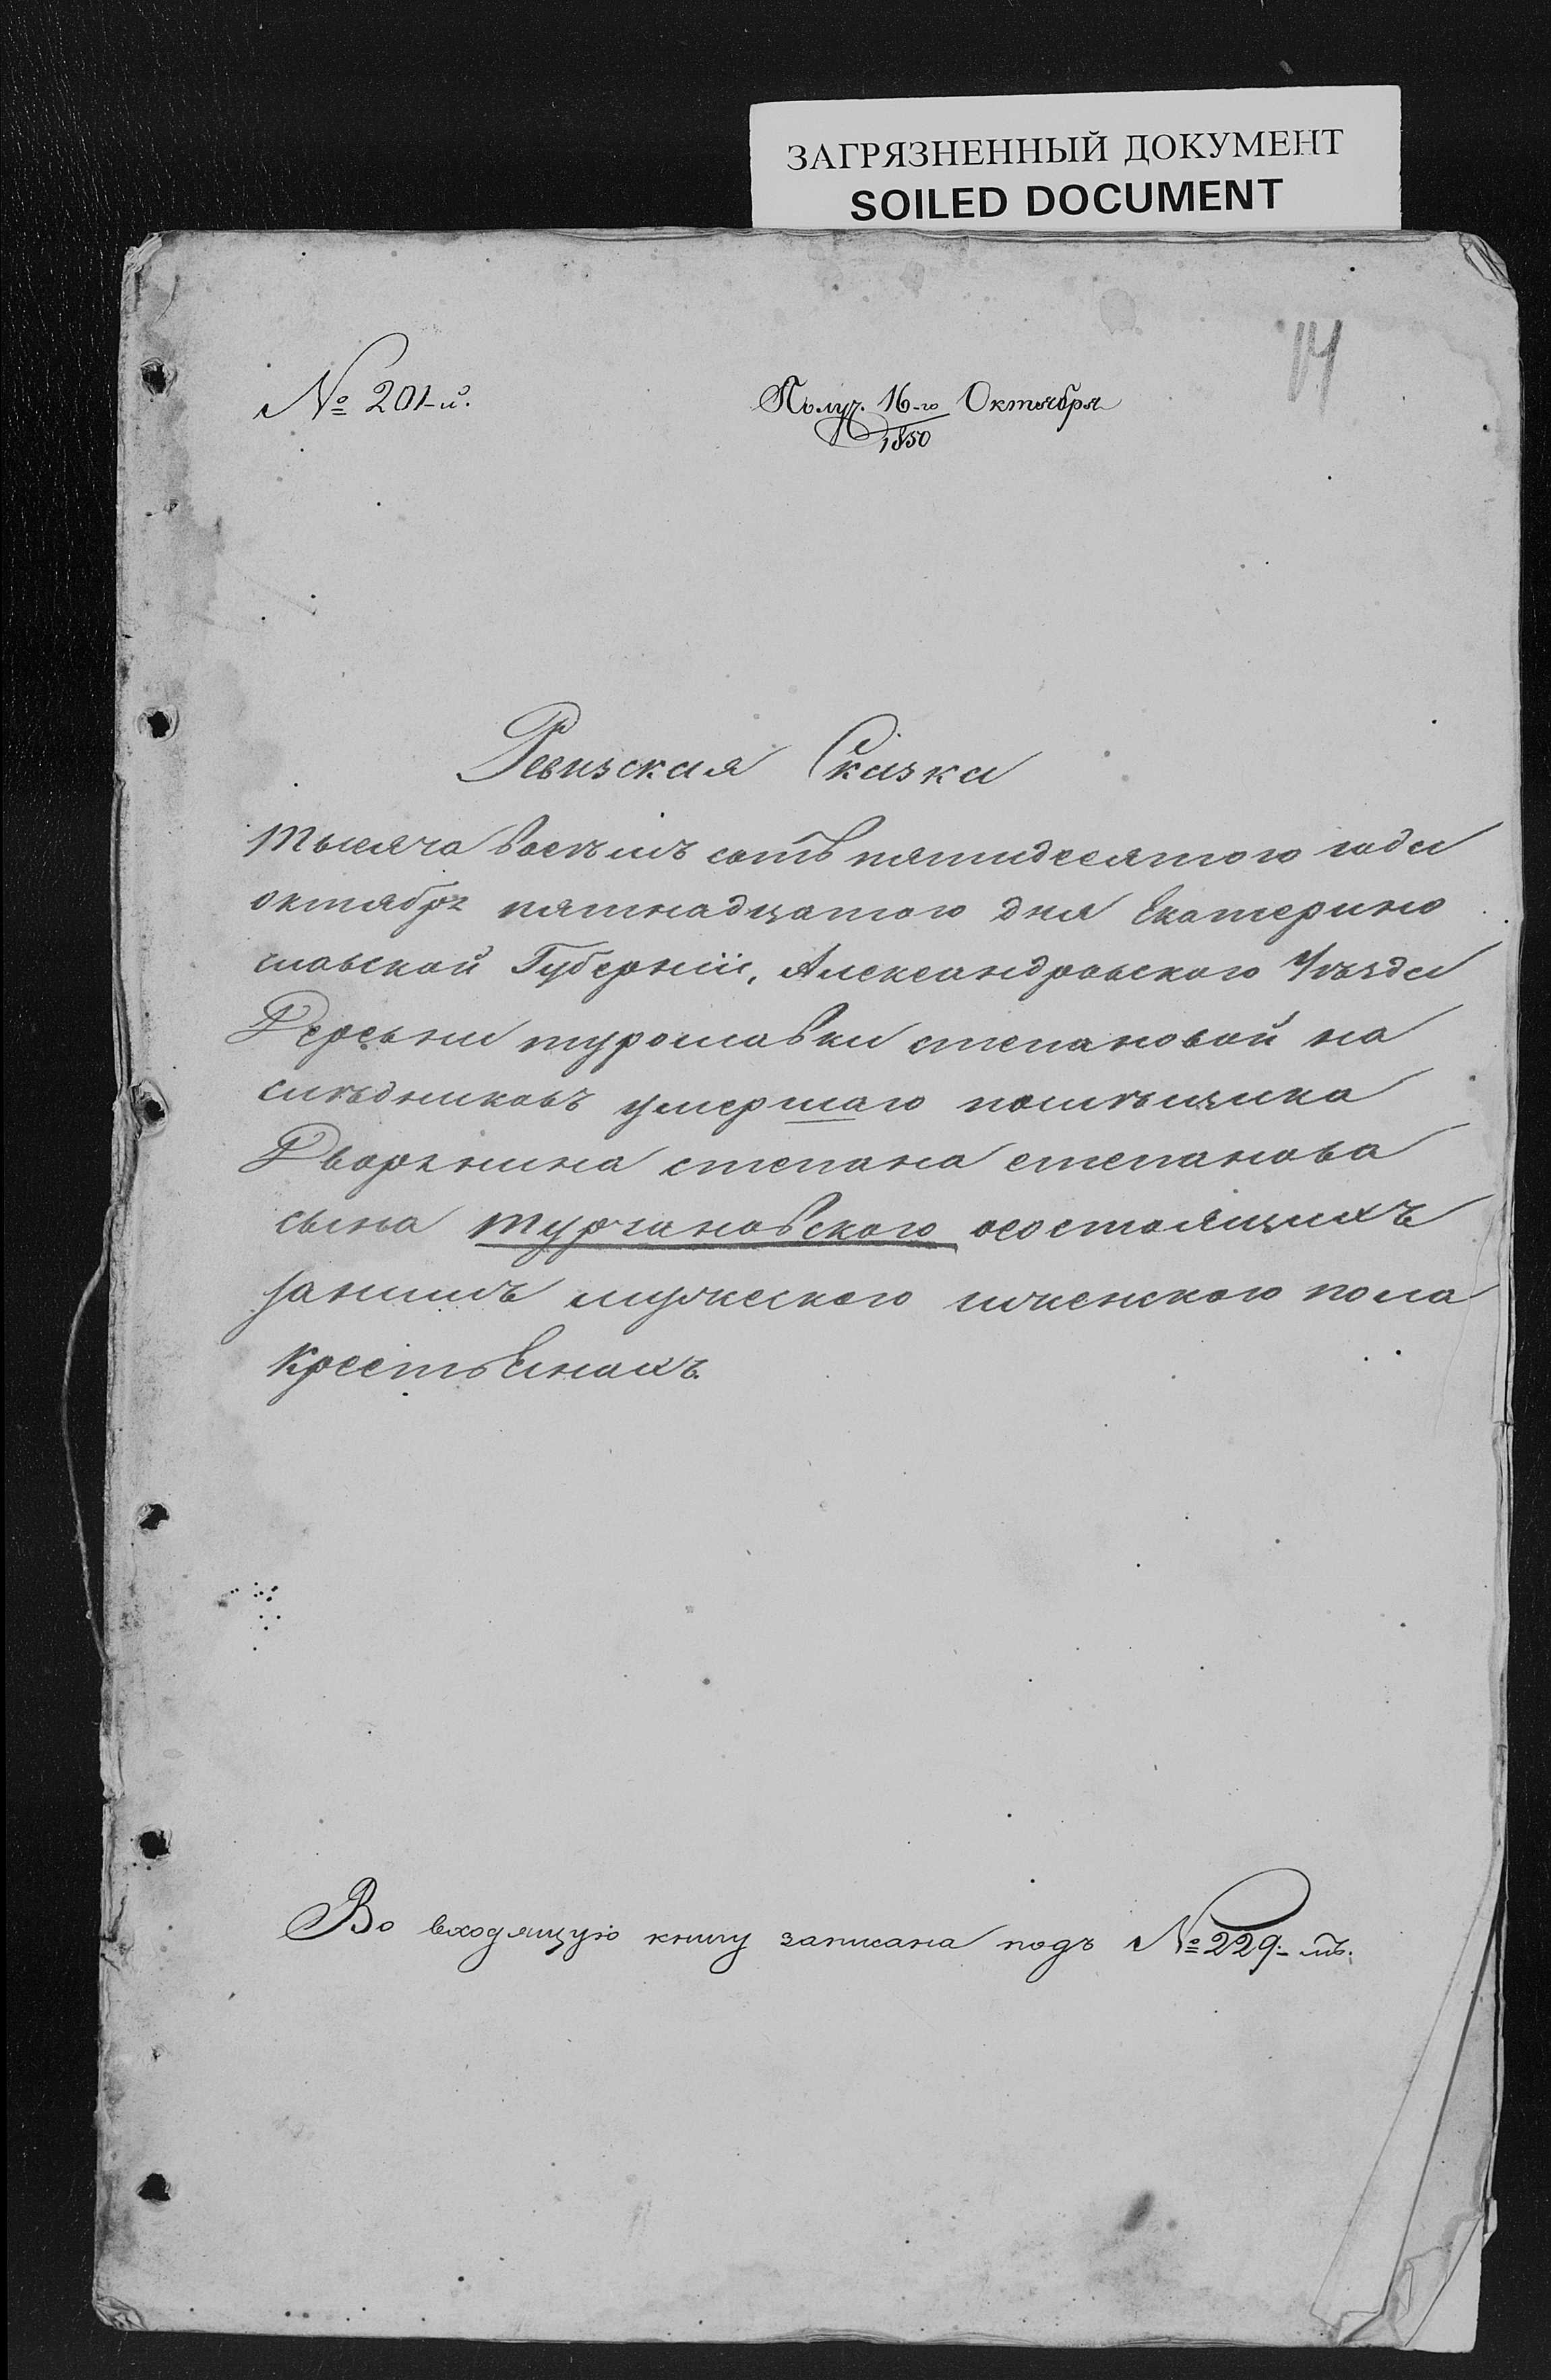 ЗАГРЯЗНЕННЫЙ ДОКУМЕНТ
SOILED DOCUMENT
14
№ 201-й.
Получ. 16-го Октября
1850
Ревизская Сказка
тысяча восемъ сотъ пятидесятого года
октября пятнадцатого дня Екатерино
славской Губернїи, Александровского Уѣзда
Деревни турославки степановой на
слѣдниковъ умершаго помѣщика
Дворянина степана степанова
сына турчановского осостоящихъ
занимъ мужеского иженского пола
Крестьянахъ.
Во входящую книгу записана подъ № 229-мъ.